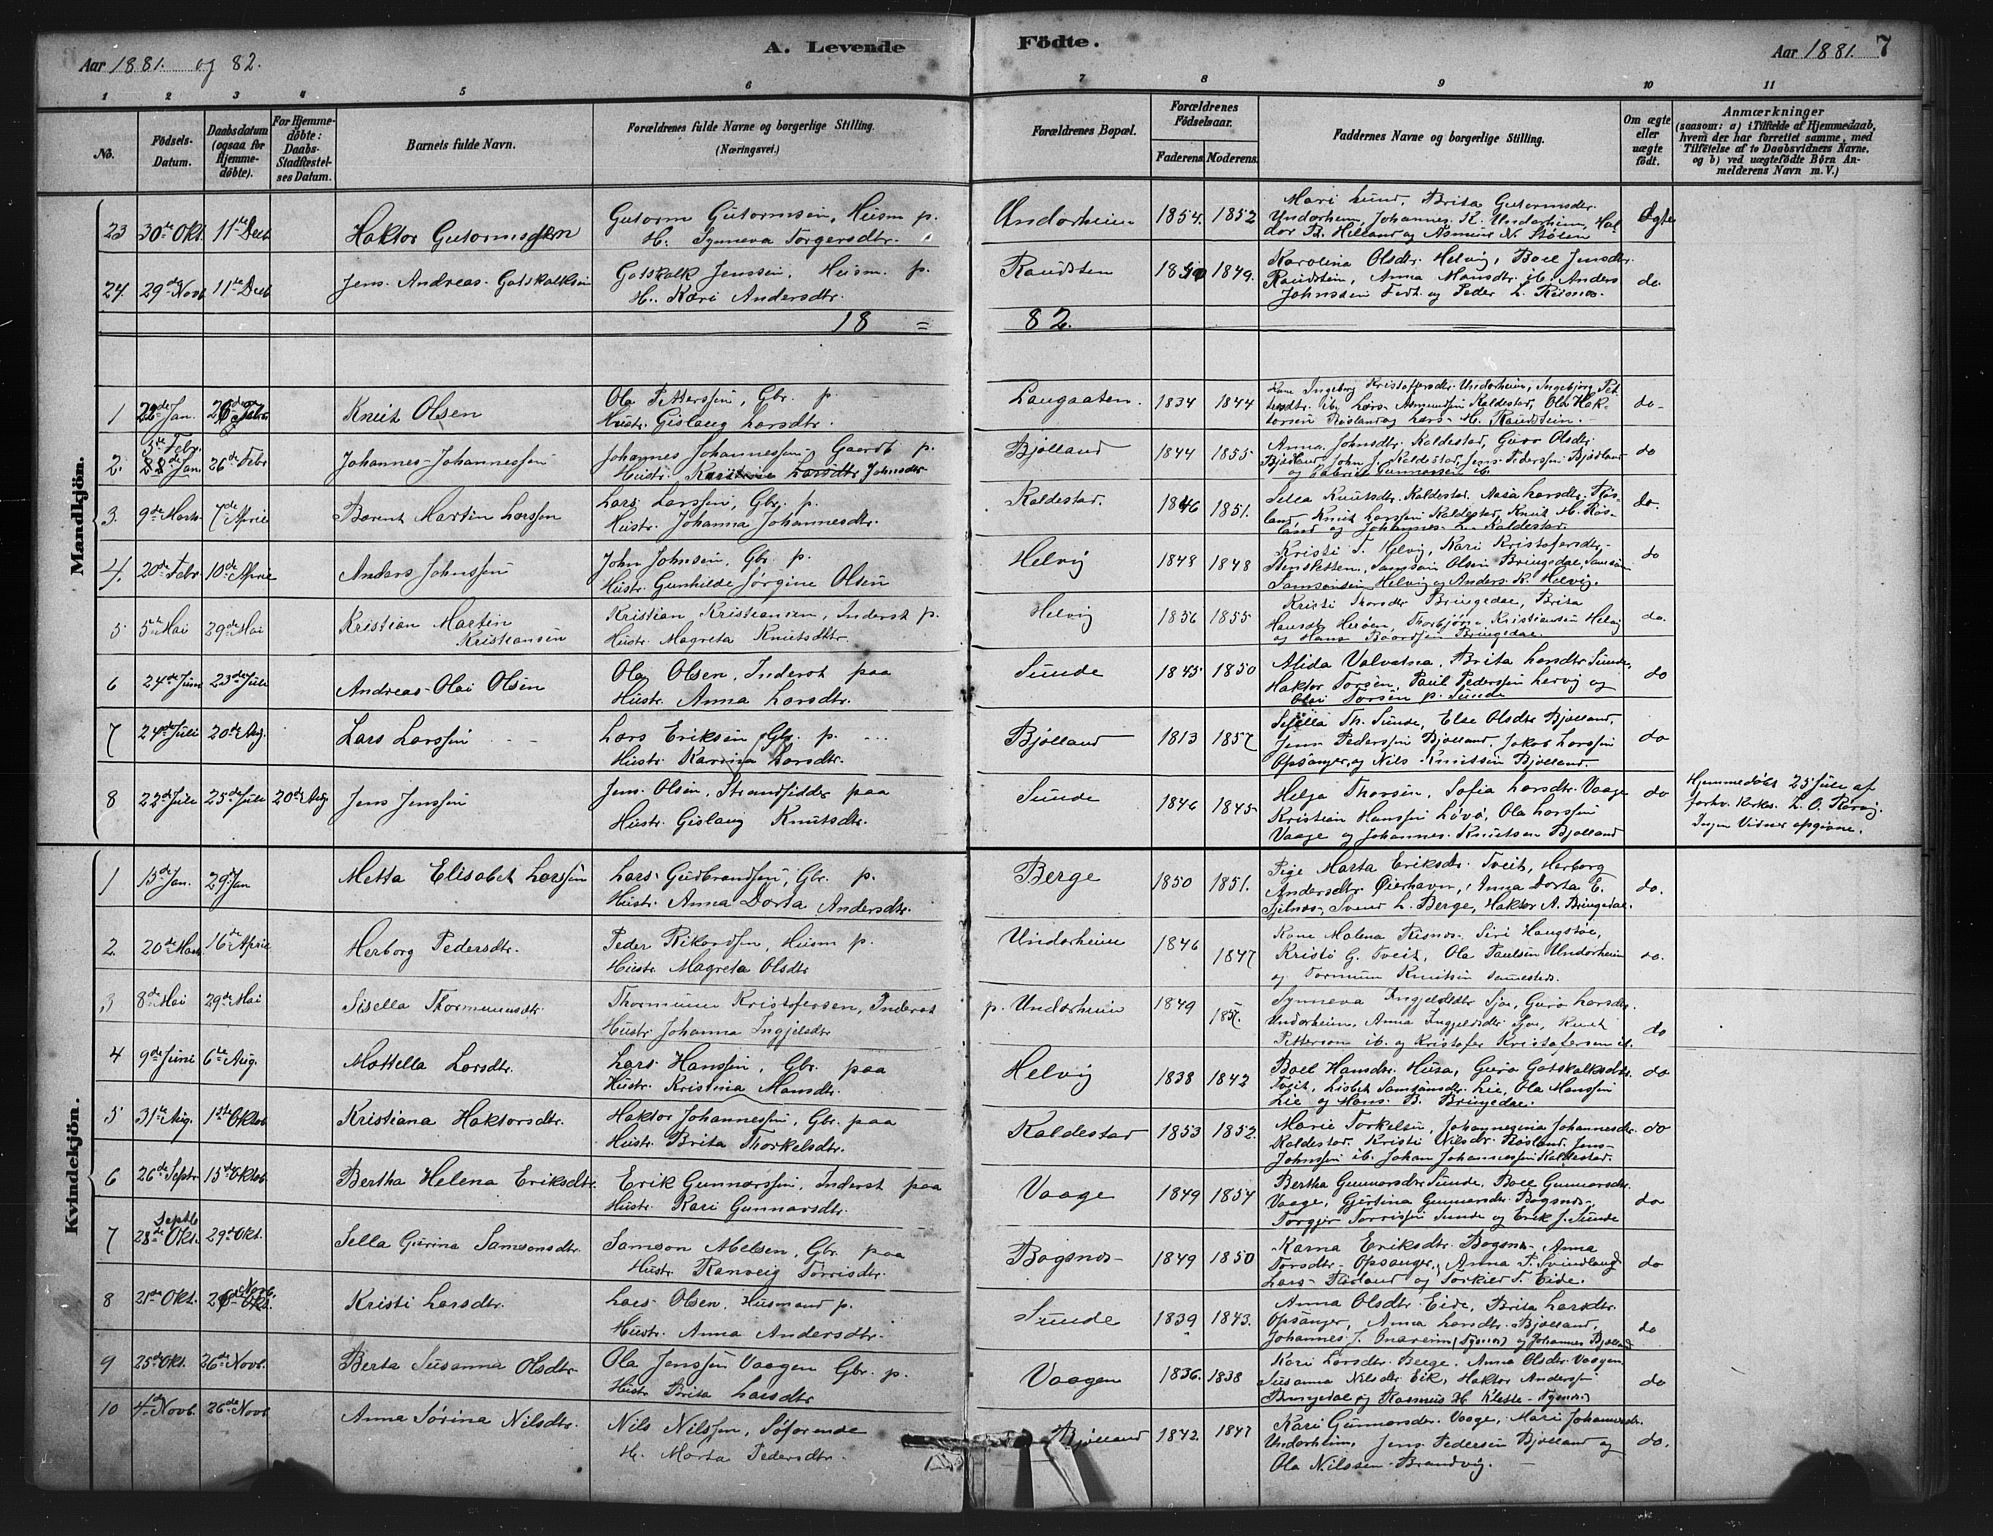 A. Levende Födte.
Aar 1881. og 82.
Aar 1881. 7
1 2 3 4 5 6 7 8 9 10 11
No.
Födsels-Datum.
Daabsdatum (ogsaa for Hjemme-döbte).
For Hjemme-döbte: Daabs-Stadfæstel-ses Datum.
Barnets fulde Navn.
Forældrenes fulde Navne og borgerlige Stilling. (Næringsvei.)
Forældrenes Bopæl.
Forældrenes Födselsaar.
Faderens. Moderens.
Faddernes Navne og borgerlige Stilling.
Om ægte eller uægte födt.
Anmærkninger
(saasom: a) i Tilfælde af Hjemmedaab, hvem der har forrettet samme, med Tilföielse af to Daabsvidners Navne, og b) ved uægtefödte Börn An-melderens Navn m. V.)
Mandkjön.
23 30te Okt. 11te Decb Haktor Gutormsen
Gutorm Gutormsen, Husm p.
H. Synneva Torgersdtr.
Undarheim 1854. 1852
Mari Lund, Brita Gutormsdtr.
Undarheim, Johannes K. Undarheim, Hal-
dor B. Helland og Asmund N. Stölen
Ægte
24. 29de Novb 11te Decb Jens Andreas Gotskalksen
Gotskalk Jenssen, Husm. p.
H. Kari Andersdtr.
Raudsten 1849.
Karolina Olsdtr Helvig, Boel Jensdtr
Raudstein, Anna Hansdtr ib. Anders
Johnssen Fedt og Peder L. Risnes.
do.
18 = 82.
1 Jan. Knut Olsen
Ola Pettersen, Gbr. p.
Hustr. Gislaug Larsdtr.
Laugaaten 1834 1844
Kone Ingeborg Kristoffersdtr Undarheim, Ingebjörg Pet-
tersdtr ib. Lars Asmundsen Kaldestad, Ola Hak-
torsen Rösland og Lars H. Raudstein.
do-
2. 5te Febr. 26de Febr Johannes Johannessen
Johannes Johannessen Gaardb p.
Hustr. Johnsdtr
Bjølland 1844 1855
Anna Johnsdtr. Kaldestad, Guro Olsdtr
Bjølland, John J. Kaldestad, Jens Pedersen Bjølland
og Gabriel Gunnarsen ib.
do
3. 9de Marts 7de April Barent Martin Larssen
Lars Larssen, Gbr. p.
Hustr. Johanna Johannesdtr.
Kaldestad. 1846 1851.
Sella Knutsdtr. Kaldestad, Aasa Larsdtr. Rös-
land, Knut Larssen Kaldestad, Knut H. Rös-
land og Johannes L. Kaldestad.
do.
4. 20de Febr 10de April Anders Johnssen
John Johnsen, Gbr. p.
Hustr. Gunhilde Jörgine Olsen
Helvig 1848 1848
Kristi T. Helvig, Kari Kristofersdtr.
Stensletten, Samson Olsen Bringedal, Samson
Samsonsen Helvig og Anders K. Helvig.
do
5 5te Mai 29de Mai Kristian Martin
Kristiansen
Kristian Kristiansen, Inderst p.
Hustr. Magreta Knutsdtr.
Helvig 1856 1855
Kristi Thorsdtr Bringedal, Brita
Hansdtr Heröen, Thorbjörn Kristiansen Helvig
og Hans Baardsen Bringedal.
do.
6 24de Juni 23de Juli Andreas Olai Olsen
Ola Olsen, Inderst paa
Hustr. Anna Larsdtr.
Sunde 1845. 1850
Alida Valvatna, Brita Larsdtr Sunde,
Haktor Torsen, Paul Pedersen Lervig og
Olai Torsen p. Sunde
do
7 24de Juli 20de Aug. Lars Larssen
Lars Eriksen Gbr. p.
Hustr. Karina Larsdtr.
Bjølland 1813 1857
Sisilla Th. Sunde, Else Olsdtr Bjölland,
Jens Pederssen Bjölland, Jakob Larssen
Opsanger, og Nils Knutsen Bjölland.
do
8 22de Juli 25de Juli 20de Aug Jens Jenssen
Jens Olsen, Strandsidder paa
Hustr. Gislaug Knutsdtr.
Sunde 1846 1845
Helga Thorsen, Sofia Larsdtr. Vaage
Kristian Hanssen Lövö, Ola Larssen
Vaage og Johannes Knutsen Bjölland
do
Hjemmedöbt 25 Juli af
forhv. Kirkes. L. O. Rørvig.
Ingen Vidner opgivne.
Kvindekjön.
1 15de Jan. 29 Jan Metta Elisabet Larssen
Lars Gudbrandsen, Gbr. p.
Hustr. Anna Dorta Andersdtr.
Berge 1850 1851.
Pige Marta Eriksdtr. Tveit, Herborg
Andersdtr Øierhavn, Anna Dorta E.
Sjelnæs, Svend L. Berge, Haktor A. Bringedal.
do.
2. 20de Mars 16de April Herborg Pedersdtr.
Peder Rikardsen, Husm p.
Hustr. Magreta Olsdtr.
Undarheim 1846 1847
Kone Malena Risnes, Siri Haugstöe,
Kristi G. Tveit, Ola Paulsen Undarheim
og Tormum Knutsen samesteds.
do.
3 8de Mai 29de Mai Sisella Thormunsdtr.
Thormum Kristofersen, Inderst
Hustr. Johanna Ingjelsdtr.
p. Undarheim 1849 1857.
Synneva Ingjeldsdtr Sjo, Guro Larsdtr.
Undarheim, Anna Ingjeldsdtr Sjo, Knut
Petterson ib. og Kristofer Kristofersen ib.
do
4 9de Juni 6te Aug. Mottella Larsdtr.
Lars Hansen, Gbr. paa
Hustr. Kristina Hansdtr.
Helvig 1838 1842
Boel Hansdtr. Husa, Guro Gotskalksdtr.
Tveit, Lisbet Samsonsdtr. Lie, Ola Hanssen
Lie og Hans B. Bringedal.
do
5 31te Aug. 1ste Oktob Kristiana Haktorsdtr.
Haktor Johannessen, Gbr. paa
Hustr. Brita Thorkelsdtr.
Kaldestad 1853 1852.
Marie Torkelsen, Johannegina Johannesdtr
Kaldestad, Kristi Nilsdtr. Rösland, Jens
Johnssen ib. Johan Johannessen Kaldestad.
do
6 26de Septr 15de Oktob Bertha Helena Eriksdtr.
Erik Gunnarssen, Inderst paa
Hustr. Kari Gunnarsdtr.
Vaage 1849 1854
Bertha Gunnarsdtr Sunde, Boel Gunnarsdtr.
Vaage, Gjertina Gunnarsdtr. Bogsnes
Torgjer Torrissen Sunde og Erik J. Sunde
do
7 28de Septb Okt. 29de Okt. Sella Gurina Samsonsdtr.
Samson Abelsen, Gbr. paa
Hustr. Ranveig Torrisdtr.
Bogsnes 1849 1850
Karna Eriksdtr. Bogsnes, Anna
Torsdtr. Opsanger, Anna P. Svindland
Lars Flöland og Torkild T. Eide.
do
8 21de Okt. Novb. Kristi Larsdtr.
Lars Olsen, Husmand p.
Hustr. Anna Andersdtr.
Sunde 1839 1843.
Anna Olsdtr. Eide, Brita Larsdtr.
Opsanger, Anna Larsdtr. Bjölland,
Johannes J. Onareim (Tysnes) og Johannes Bjölland
do
9 25de Okt. 26de Novb. Berta Susanna Olsdtr.
Ola Jenssen Vaagen Gbr. p.
Hustr Brita Larsdtr
Vaagen 1836. 1838
Kari Larsdtr. Berge, Anna Olsdtr. Vaagen
Susanna Nilsdtr Eik, Haktor Andersen
Bringedal og Rasmus H. Kleste Tysnes)
do
10 4de Novb. 26de Novb Anna Sörina Nilsdtr.
Nils Nilssen, Söfarende
H. Marta Pedersdtr.
Bjølland 1842. 1847
Kari Gunnarsdtr. Vaage, Mari Johannesdtr.
Undarheim, Jens Pedersen Bjölland og
Ola Nilssen Brandvig.
do.